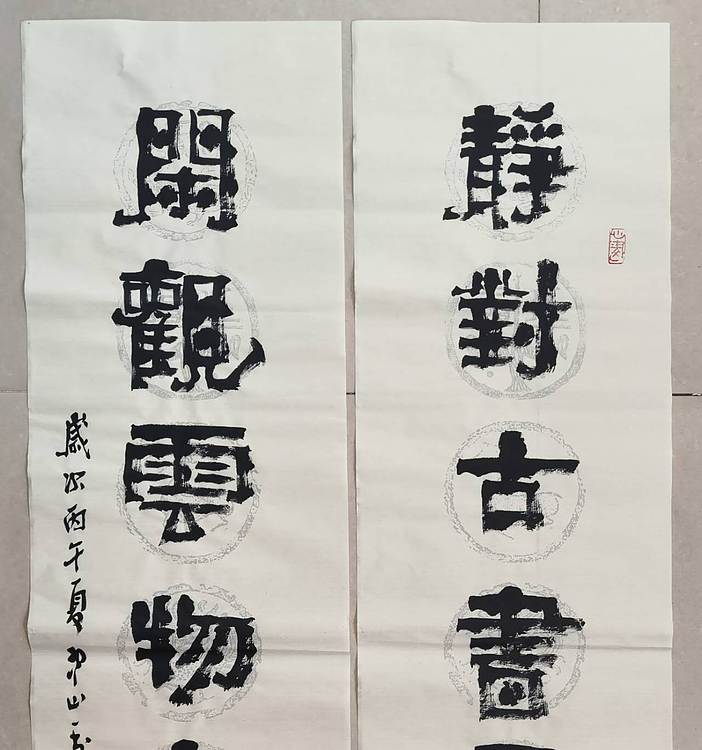 靜對古書
閑觀雲物
歲次丙午夏